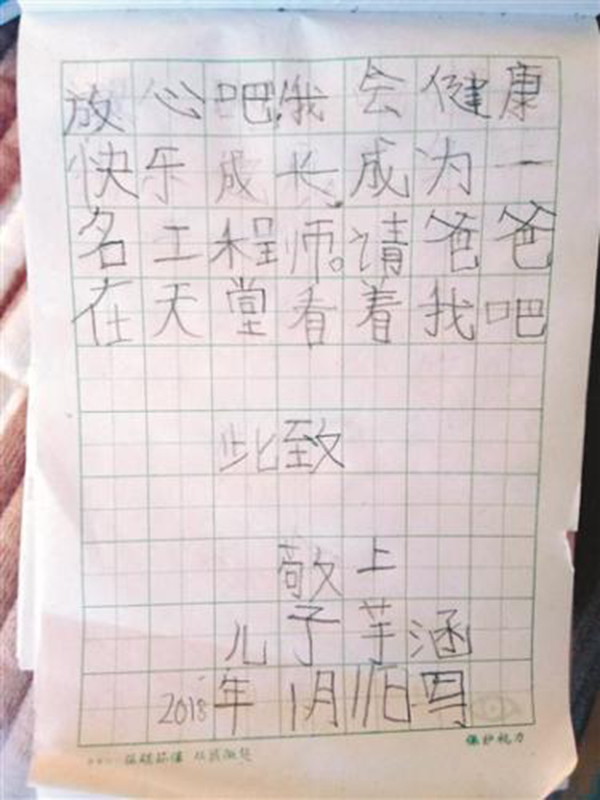 放心吧,我会健康
快乐成长,成为一
名工程师。请爸爸
在天堂看着我吧
此致
敬上
儿子芋涵
2018年1月11日写
保护视力